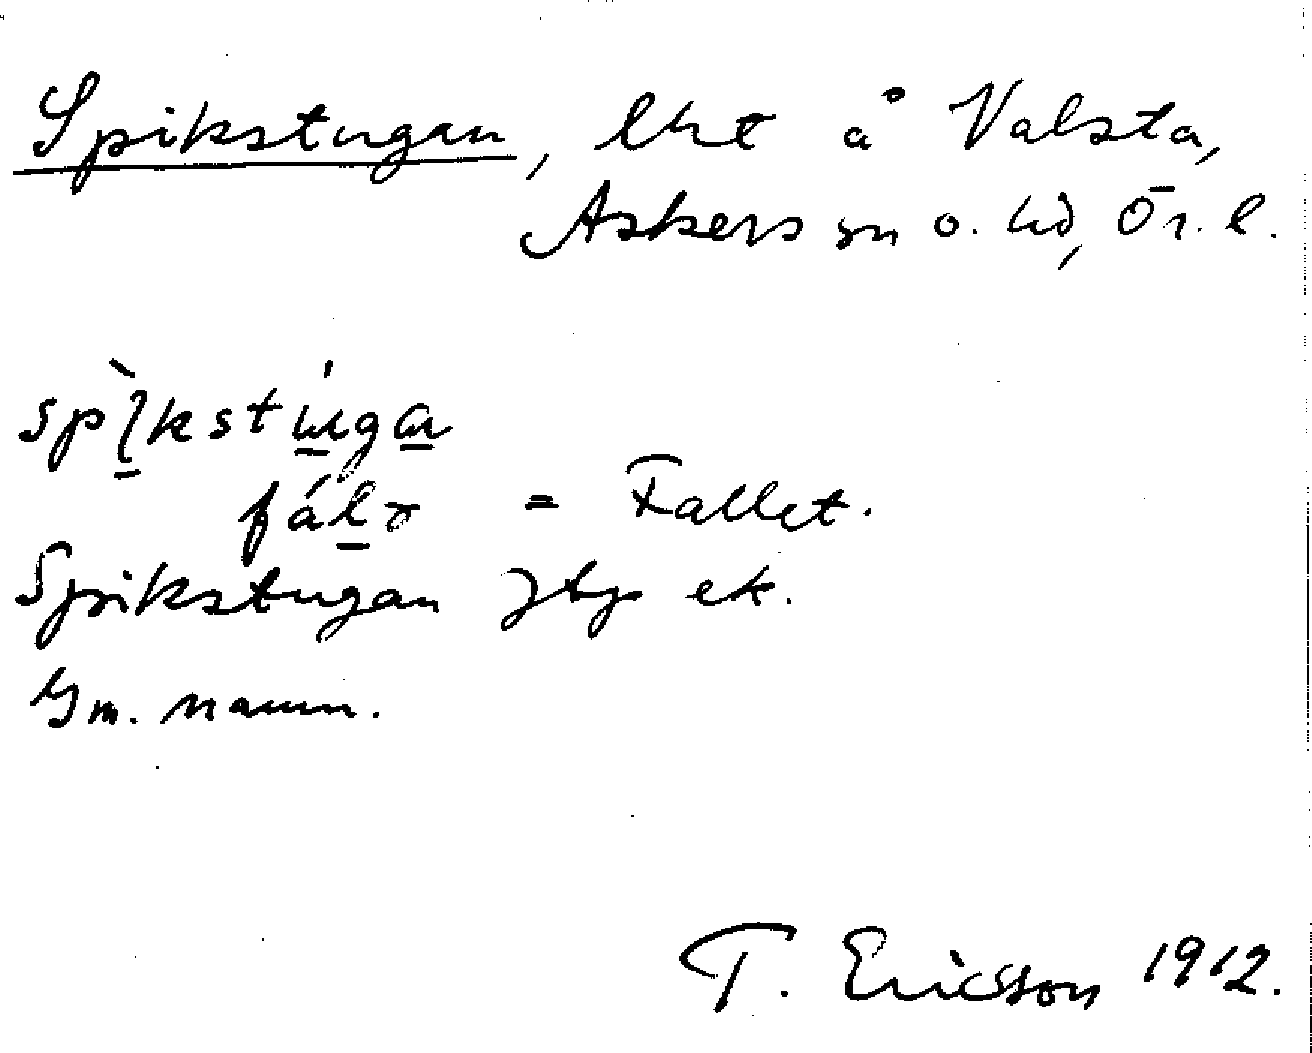 Spikstugan, lht å Valsta,
Askers sn o. hd, Ör. l.
spìkstúgan
fálə = Fallet.
Spikstugan Jby ek.
Gm. namn.
T. Ericsson 1912.